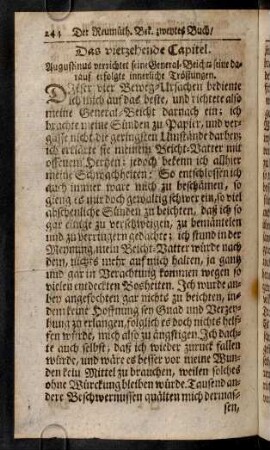 244 Der Reumüth. Bek. zweytes Buch/
Das vierzehende Capitel.
Augustinus verrichtet seine General-Beicht/ seine da-
rauf erfolgte innerliche Tröstungen.
Dieser vier Beweg-Ursachen bediente
ich mich auf das beste, und richtete also
meine General-Beicht darnach ein: ich
brachte meine Sünden zu Papier, und ver-
gasse nicht die geringsten Umstände darbey;
ich erklärte sie meinem Beicht-Vatter mit
offenem Hertzen: jedoch bekenn ich allhier
meine Schwachheiten: So entschlossen ich
auch immer ware mich zu beschämen, so
gieng es mir doch gewaltig schwer ein, so viel
abscheuliche Sünden zu beichten, daß ich so
gar einige zu verschweigen, zu bemäntelen
und zu verringern gedachte; ich stund in der
Meynung, mein Beicht-Vatter würde nach
dem, nichts mehr auf mich halten, ja gantz
und gar in Verachtung kommen wegen so
vielen entdeckten Bosheiten. Ich wurde an-
bey angefochten gar nichts zu beichten, in-
dem keine Hoffnung sey Gnad und Verzey-
hung zu erlangen, folglich es doch nichts helf-
fen würde, mich also zu ängstigen. Ich dach-
te auch selbst, daß ich wieder zuruck fallen
würde, und wäre es besser vor meine Wun-
den kein Mittel zu brauchen, weilen solches
ohne Würckung bleiben würde. Tausend an-
dere Beschwernussen quälten mich dermas-
sen,